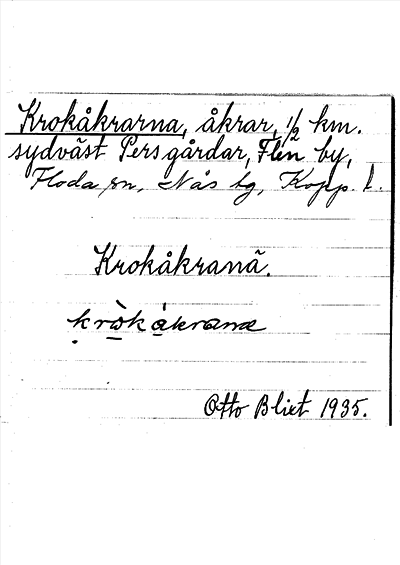 Krokåkrarna, åkrar, 1/2 km.
sydväst Persgårdar, Flen by,
Floda sn, Nås hg, Kopp. l.
Krokåkranä.
kròkákranæ
Otto Blixt 1935.